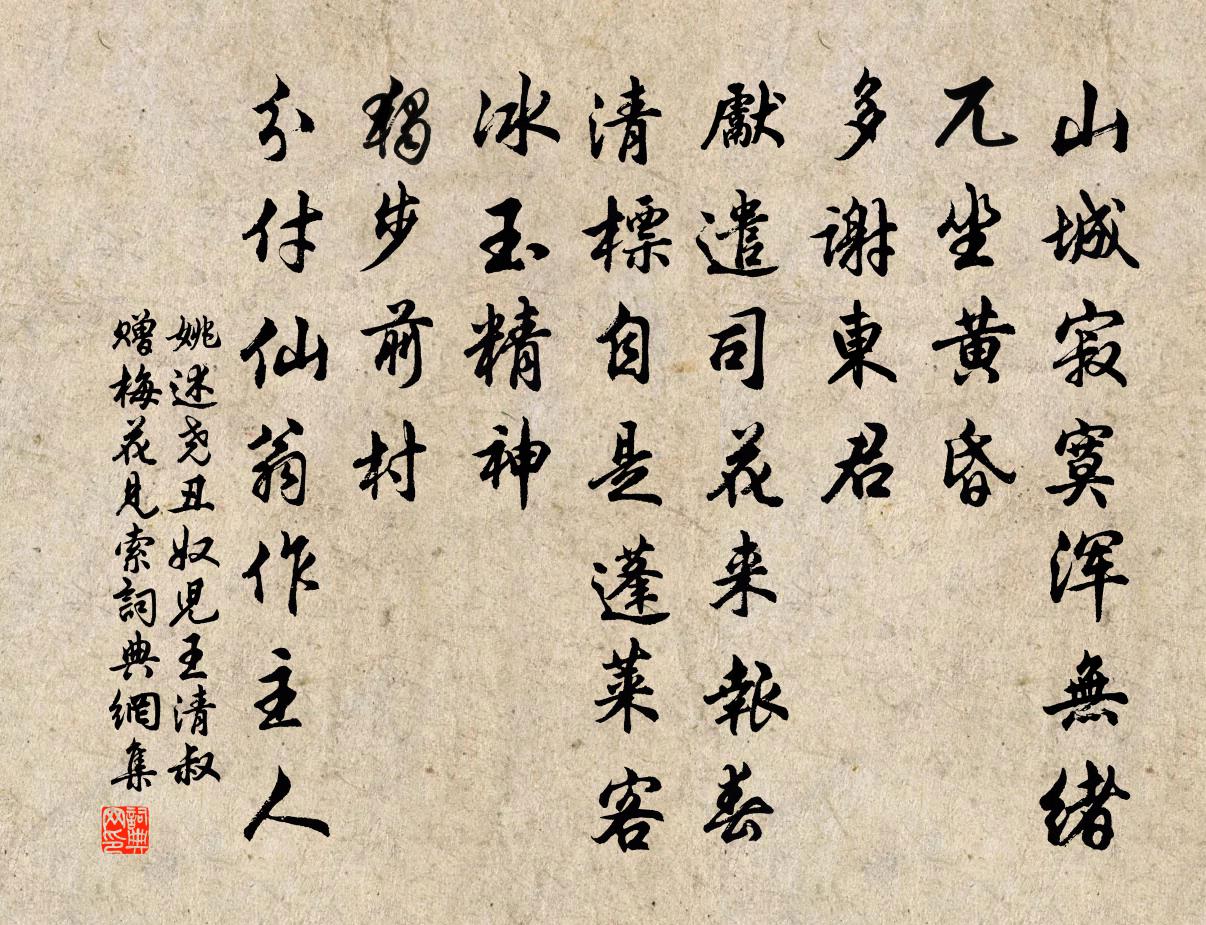 山城寂寞浑無緒
兀坐黄昏
多謝東君
獻遣司花来報春
清標自是蓬莱客
冰玉精神
獨步前村
分付仙翁作主人
姚述尧丑奴兒王清叔
赠梅花見索詞典網集
詞典网印